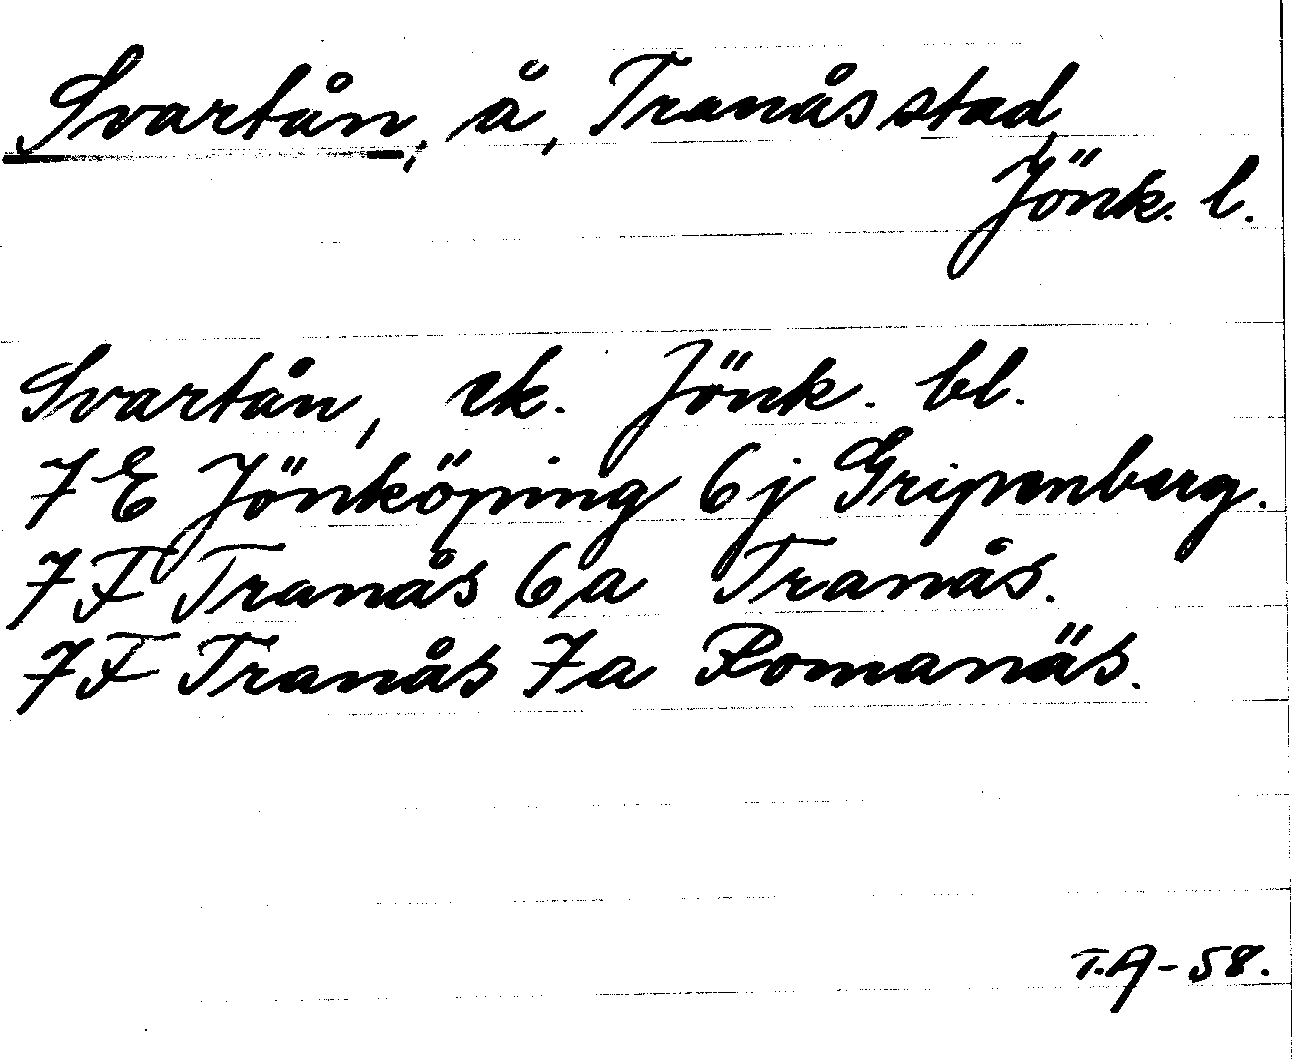 Svartån, å, Tranås stad,
Jönk. l.
Svartån, ek. Jönk. bl.
7E Jönköping 6j Gripenberg.
7F Tranås 6a Tranås.
7F Tranås 7a Romanäs.
T.A-58.